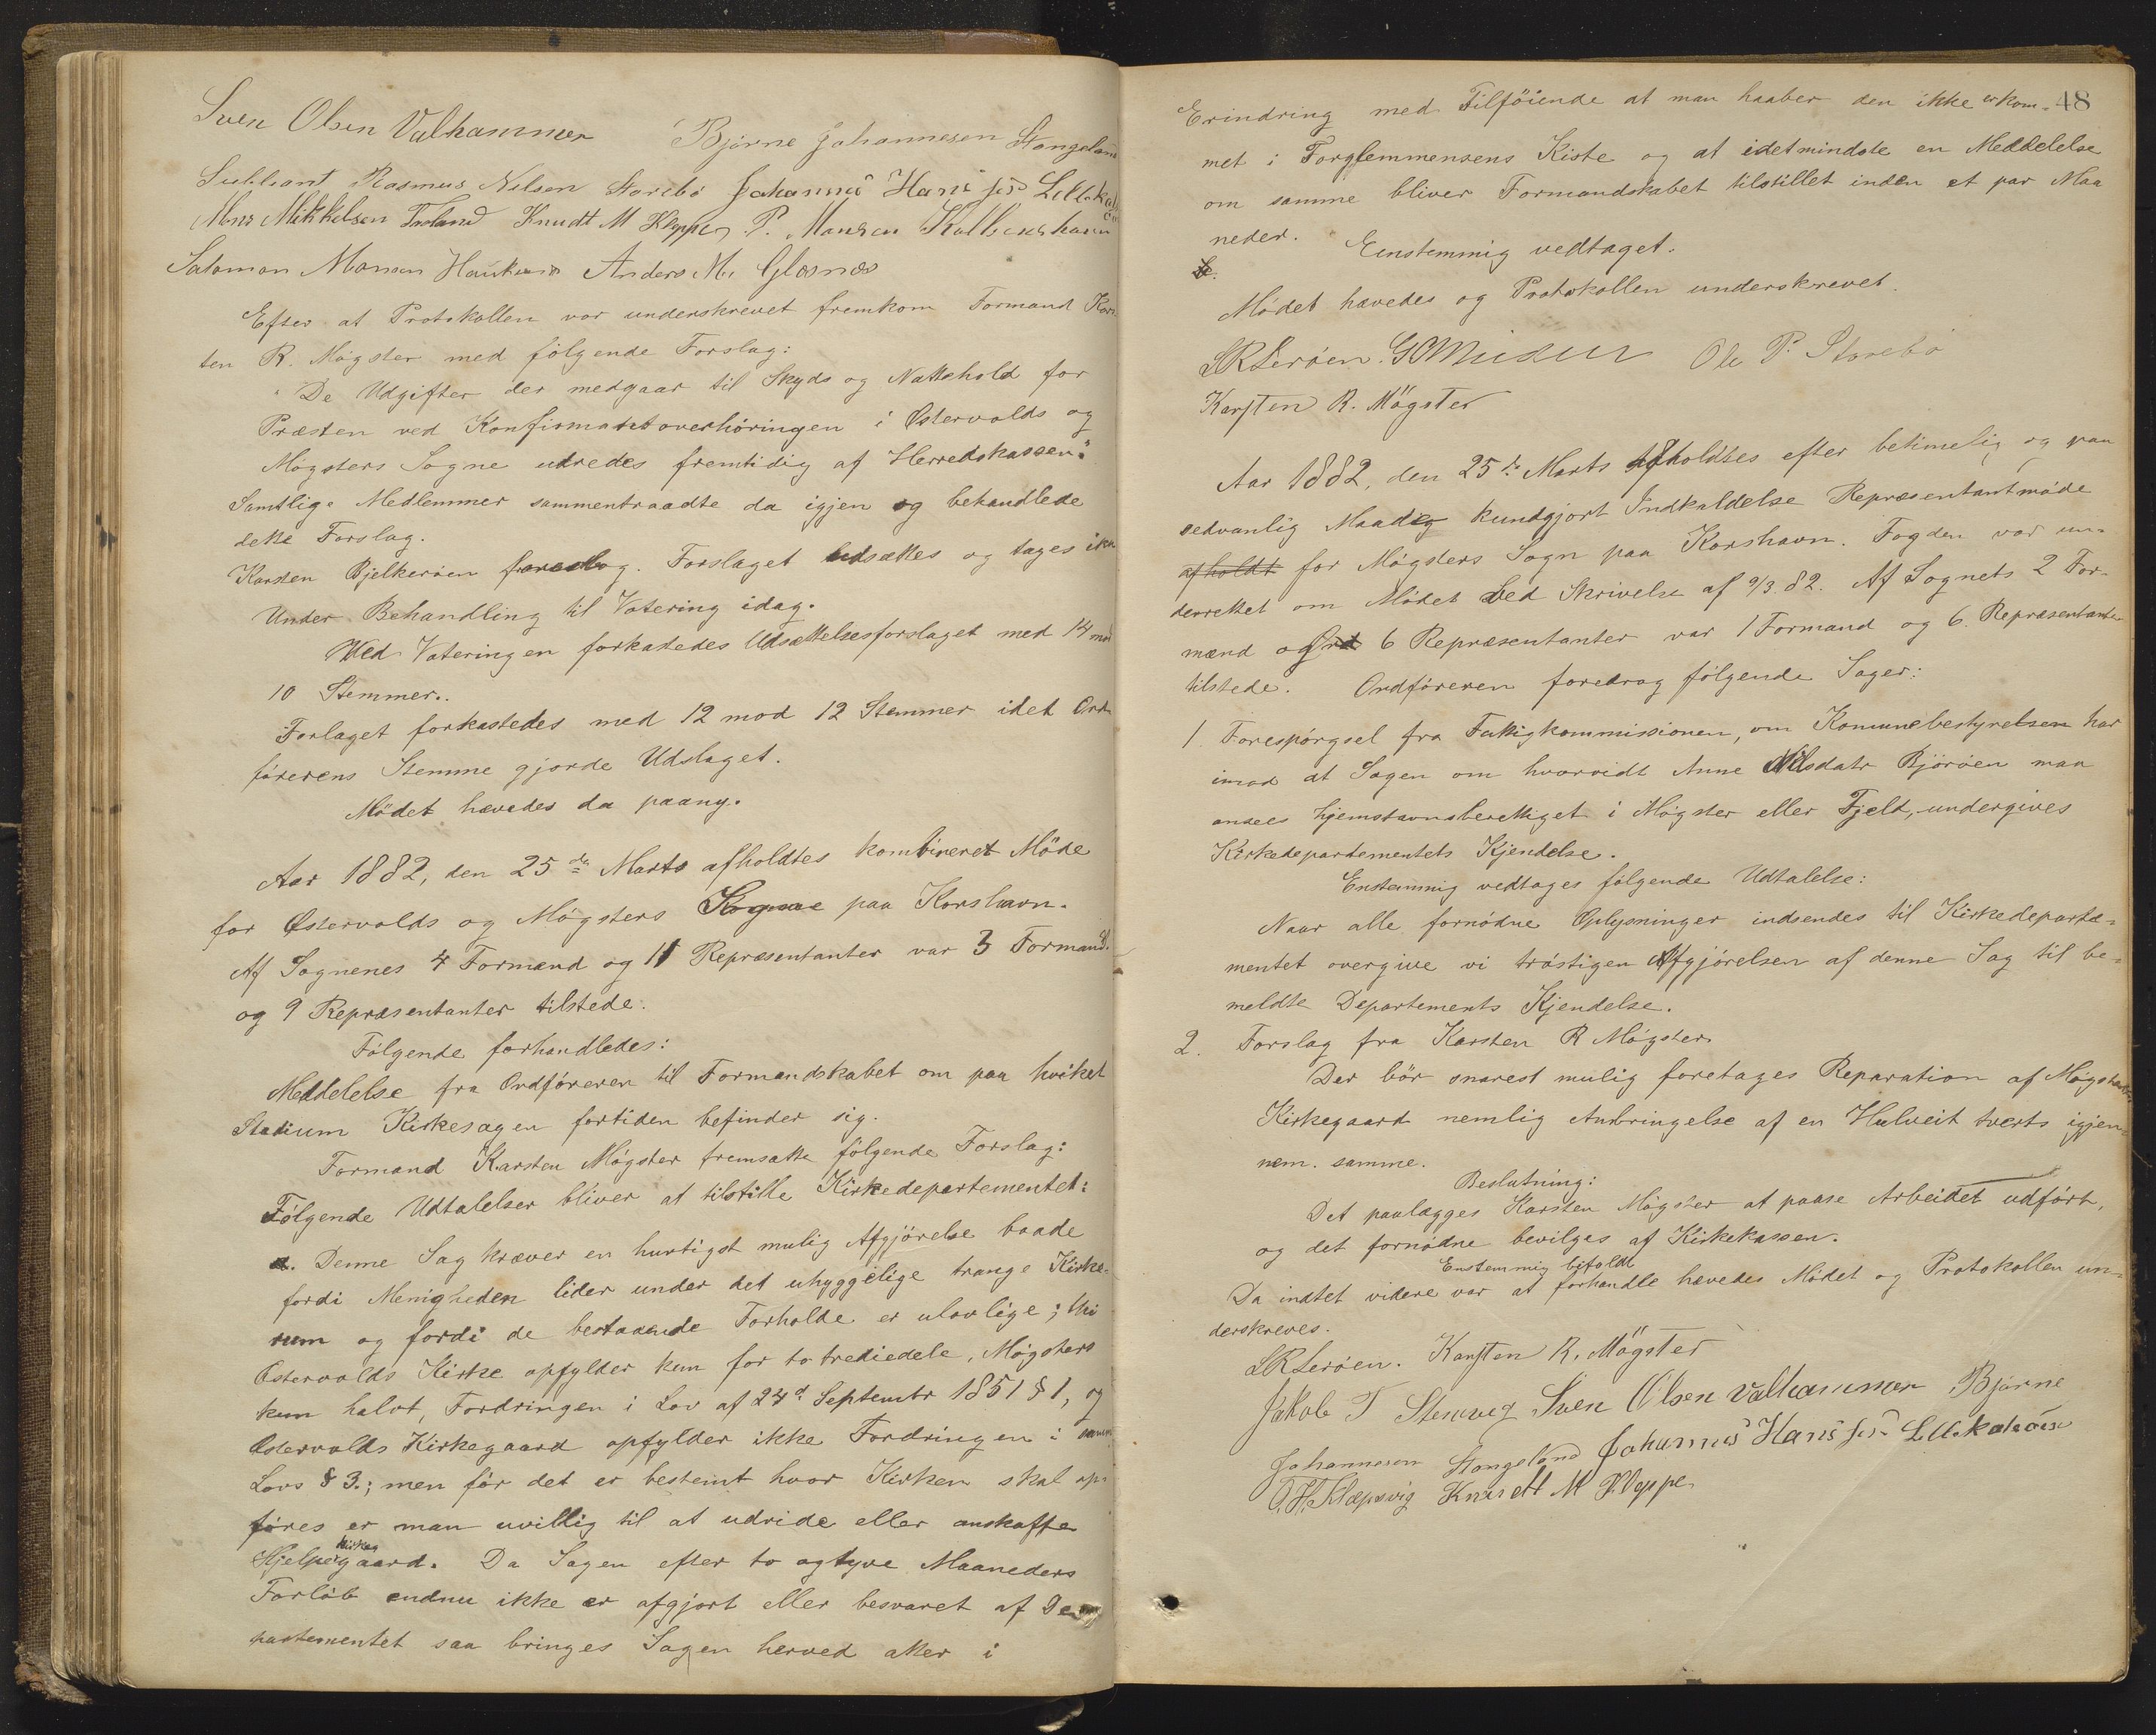 Sven Olsen Valhammer Bjørne Johannesen Stangeland
Supleant Rasmus Nilsen Storebø Johannes Hans Søn Lille
Mons Mikkelsen Troland Knudt M Kleppe P. Mansen
Salomon Monsen Anders M. Glesnæs
Efter at Protokollen var underskrevet fremkom Formand Kar
ten R. Møgster med følgende Forslag:
"De Udgifter der medgaar til Skyds og Nattehold for
Præsten ved Konfirmantoverhöringen i Østervolds og
Møgsters Sogne udredes fremtidig af Herredskassen."
Samtlige Medlemmer sammentraadte da igjen og behandlede
dette Forslag.
Karsten Bjelkerøen foreslog. Forslaget udsættes og tages ikke
under Behandling til Votering idag.
Ved Voteringen forkastedes Udsættelsesforslaget med 14 mod
10 Stemmer.
Forlaget forkastedes med 12 mod 12 Stemmer idet Ord
förerens Stemme gjorde Udslaget.
Mödet hævedes da paany.
Aar 1882, den 25de Marts afholdtes kombineret Möde
for Østervolds og Møgsters Sogne paa Korshavn.
Af Sognenes 4 Formænd og 11 Repræsentanter var 3 Formænd
og 9 Repræsentanter tilstede.
Følgende forhandledes:
Meddelelse fra Ordföreren til Formandskabet om paa hvilket
Stadium Kirkesagen fortiden befinder sig.
Formand Karsten Møgster fremsatte følgende Forslag:
Følgende Udtalelser bliver at tilstille Kirkedepartementet:
a. Denne Sag kræver en hurtigst mulig Afgjörelse baade
fordi Menigheden lider under det uhyggelige trange Kirke-
rum og fordi de bestaaende Forholde er ulovlige; thi
Østervolds Kirke opfylder kun for to trediedele, Møgsters
kun halvt, Fordringen i Lov af 24d Septembr 1851 § 1, og
Østervolds Kirkegaard opfylder ikke Fordringen i samme
Lovs § 3.; men før det er bestemt hvor Kirken skal op-
føres er man uvillig til at udvide eller anskaffe
Hjelpekirkegaard. Da Sagen efter to og tyve Maaneders
Forløb endnu ikke er afgjort eller besvaret af De-
partementet saa bringes Sagen herved atter i
48
Erindring med Tilföiende at man haaber den ikke er kom-
met i Forglemmensens Kiste og at idetmindste en Meddelelse
om samme bliver Formandskabet tilstillet inden et par Maa
neder. Eenstemmig vedtaget.
Mödet hævedes og Protokollen underskrevet.
LRLerøen. GOMidsen Ole P. Storebö
Karsten R. Mögster
Aar 1882, den 25de Marts afholdtes efter betimelig og paa
sedvanlig Maade kundgjort Indkaldelse Repræsentantmøde
afholdt for Møgsters Sogn paa Korshavn. Fogden var un-
derrettet om Mödet ved Skrivelse af 9/3. 82. Af Sognets 2 For-
mænd og 6 Repræsentanter var 1 Formand og 6. Repræsentanter
tilstede. Ordföreren foredrog følgende Sager:
1. Forespørgsel fra Fattigkommissionen, om Komunebestyrelsen har
imod at Sagen om hvorvidt Anne Nilsdatr Björöen maa
ansees hjemstavnsberettiget i Møgster eller Fjeld, undergives
Kirkedepartementets Kjendelse.
Enstemmig vedtages følgende Udtalelse:
Naar alle fornødne Oplysninger indsendes til Kirkedeparte-
mentet overgive vi trøstigen Afgjörelsen af denne Sag til be-
meldte Departements Kjendelse.
2. Forslag fra Karsten R Møgster
Der bør snarest mulig foretages Reparation af Møgsters
Kirkegaard nemlig Anbringelse af en Hulveit tverts igjen-
nem samme.
Beslutning:
Det paalægges Karsten Møgster at paase Arbeidet udført,
og det fornødne bevilges af Kirkekassen.
Enstemmig bifaldt
Da indtet videre var at forhandle hævedes Mödet og Protokollen un-
derskreves.
LRLerøen. Karsten R. Mögster
Jakob T Stenvig Sven Olsen Valhammer Bjørne
Johannesen Stangeland Johannes Hans Søn
O. H. Klepsvig Knudt M Kleppe